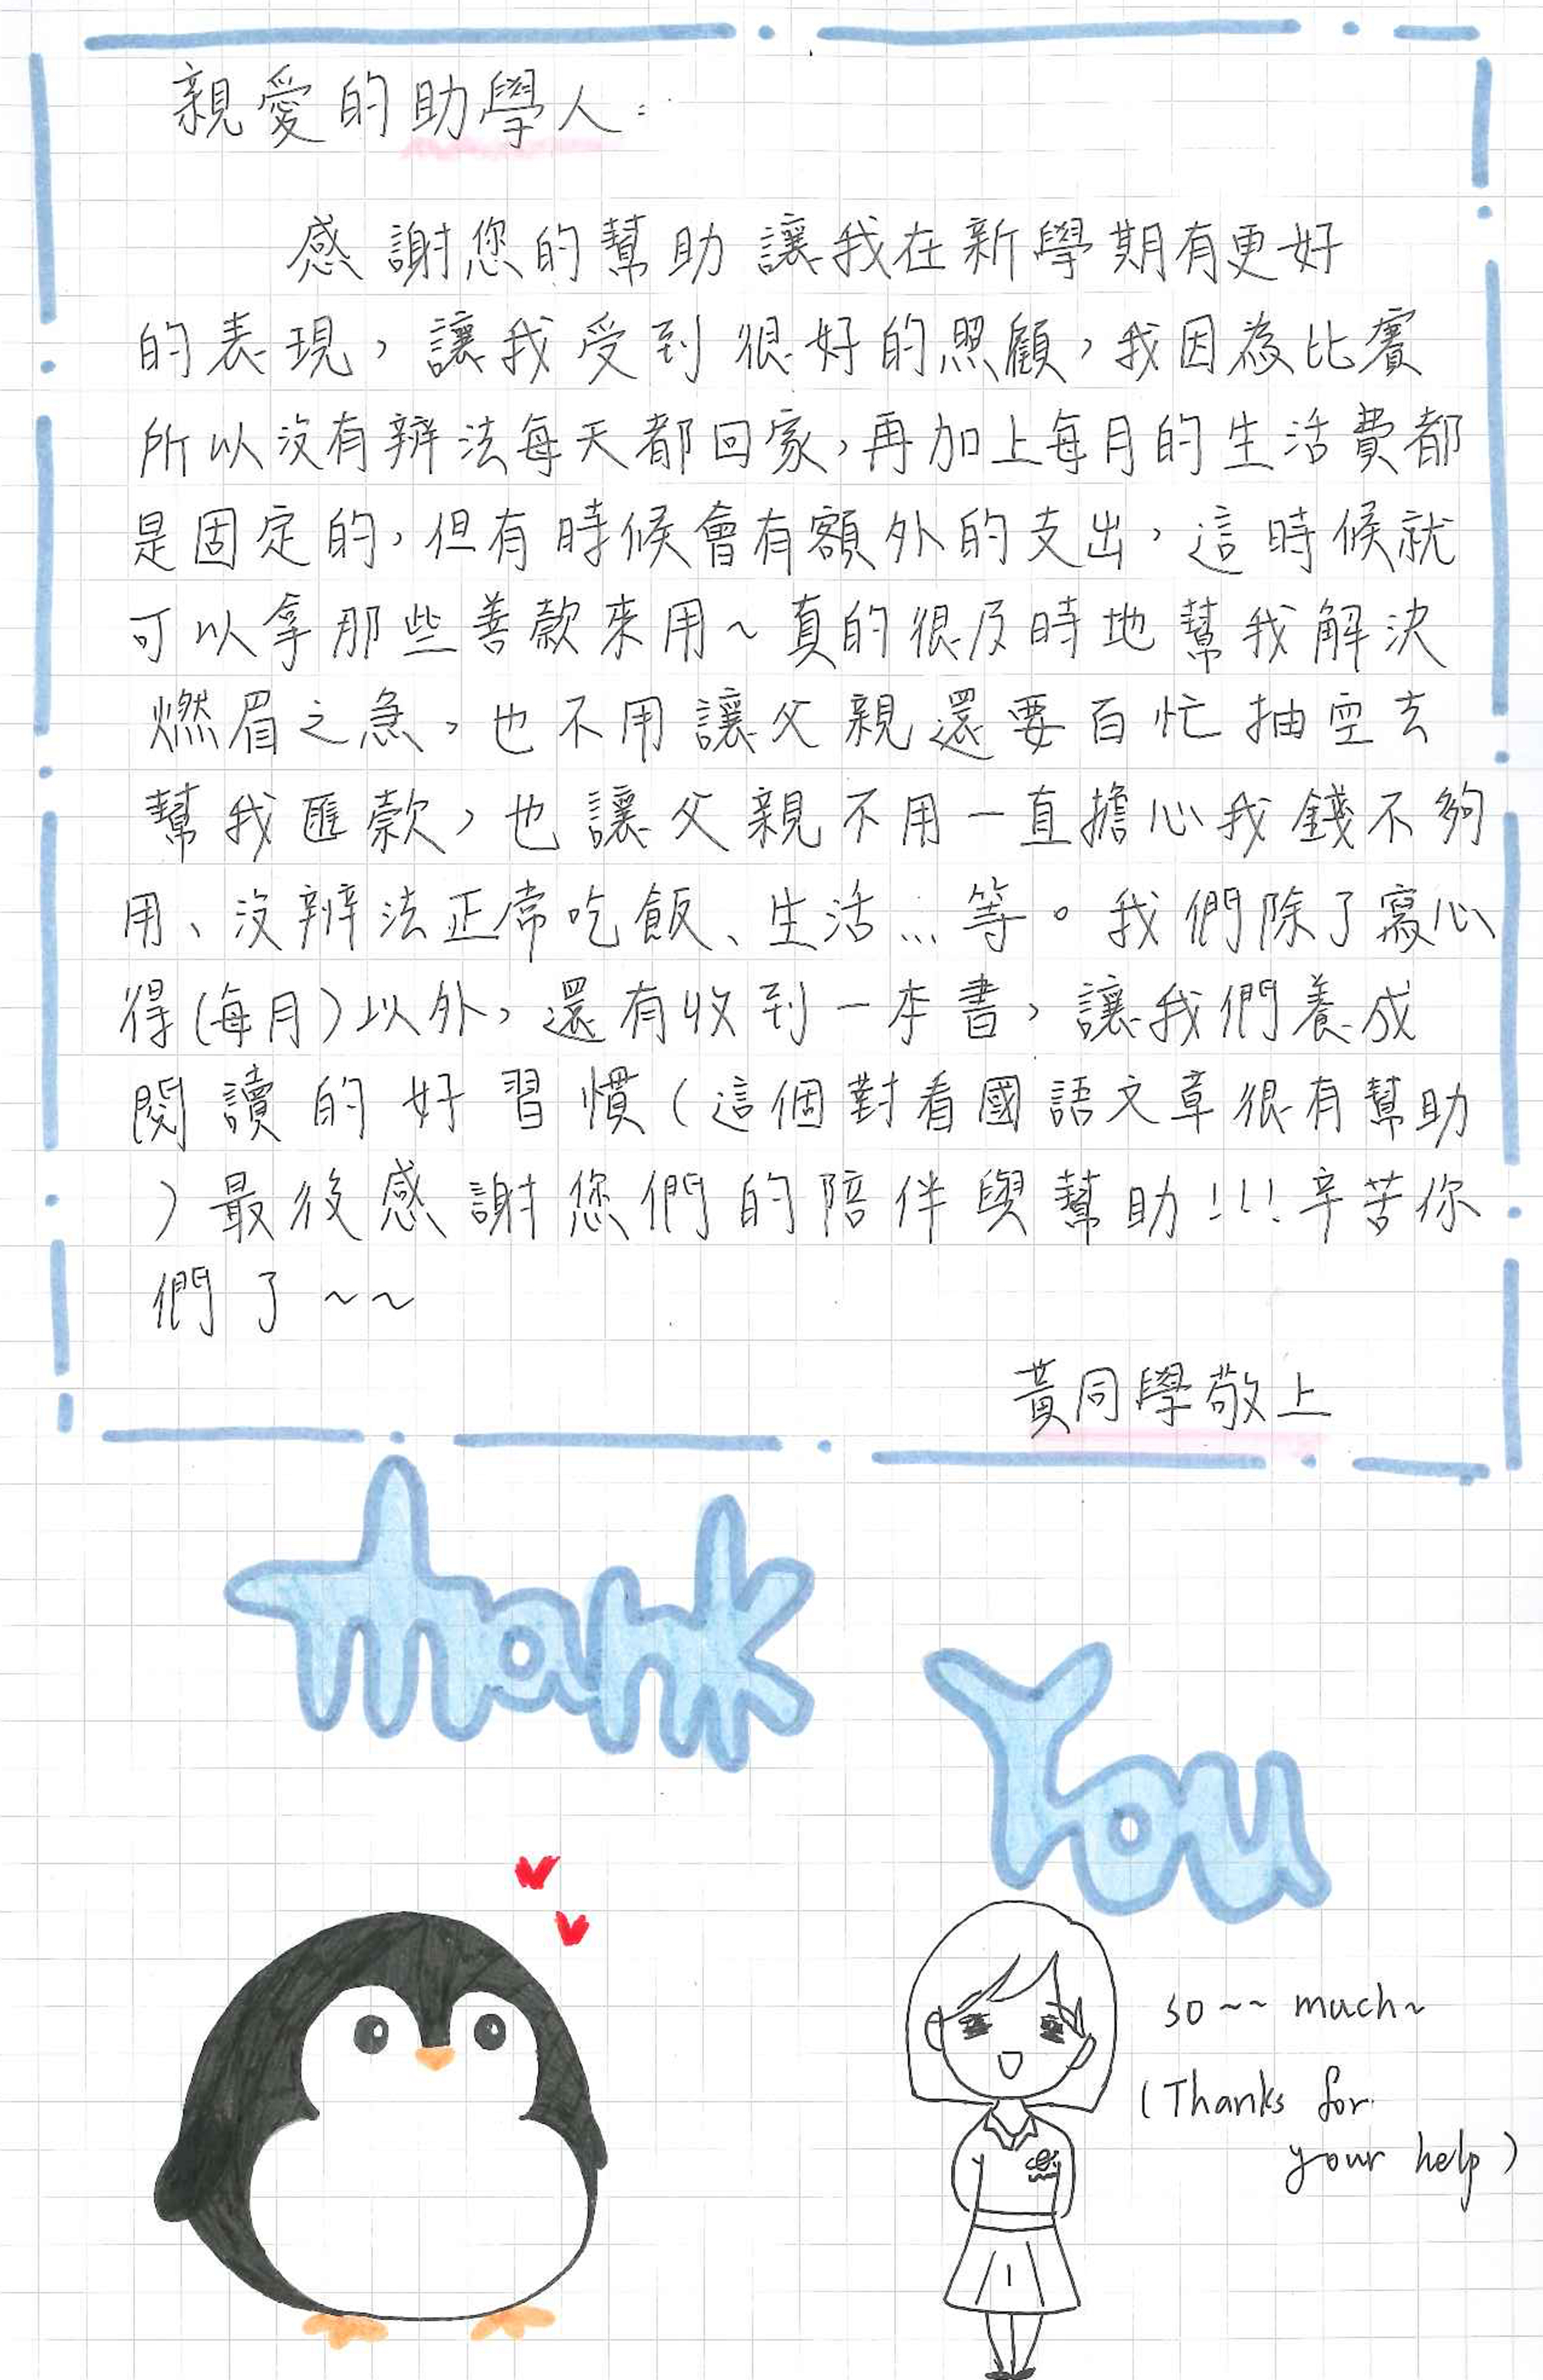 親愛的助學人：
感謝您的幫助讓我在新學期有更好
的表現，讓我受到很好的照顧，我因為比賽
所以沒有辦法每天都回家，再加上每月的生活費都
是固定的，但有時候會有額外的支出，這時候就
可以拿那些善款來用~真的很及時地幫我解決
燃眉之急，也不用讓父親還要百忙抽空去
幫我匯款，也讓父親不用一直擔心我錢不夠
用、沒辦法正常吃飯、生活…等。我們除了寫心
得(每月)以外，還有收到一本書，讓我們養成
閱讀的好習慣(這個對看國語文章很有幫助
)最後感謝您們的陪伴與幫助!!!辛苦你
們了~~
黃同學敬上
Thank
You
so~~ much~
(Thanks for
your help)